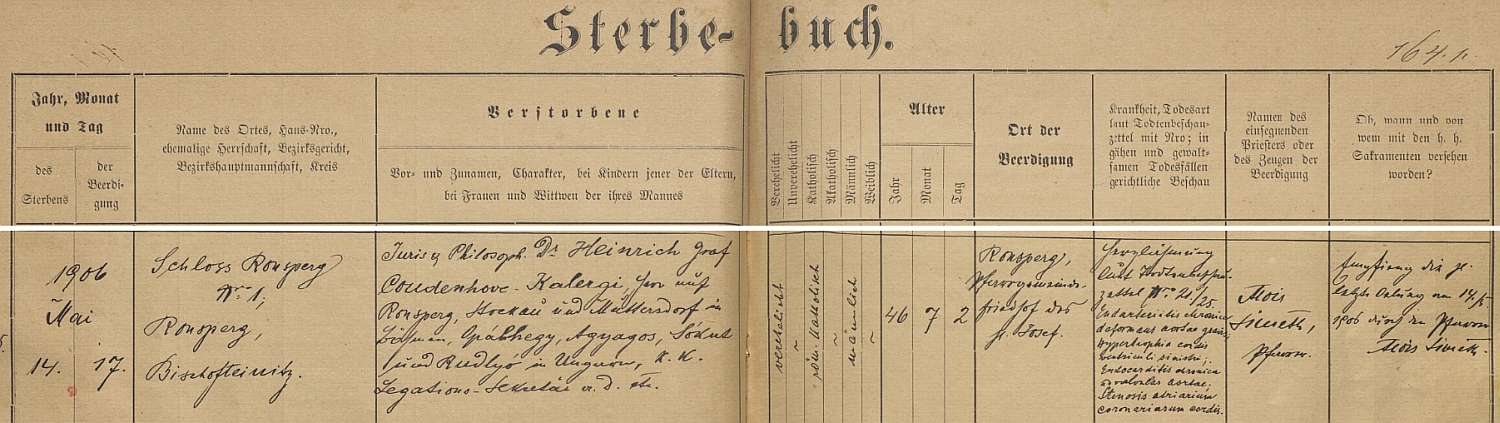 Sterbe-buch.
164.
Jahr, Monat
und Tag
des
Sterbens
der
Beerdi-
gung
Name des Ortes, Haus-Nro.,
ehemalige Herrschaft, Bezirksgericht,
Bezirkshauptmannschaft, Kreis
Verstorbene
Vor- und Zunamen, Charakter, bei Kindern jener der Eltern,
bei Frauen und Wittwen der ihres Mannes
Verehelicht
Unverehelicht
Katholisch
Akatholisch
Männlich
Weiblich
Alter
Jahr
Monat
Tag
Ort der
Beerdigung
Krankheit, Todesart
laut Todtenbeschau-
zettel mit Nro; in
gähen und gewalt-
samen Todesfällen
gerichtliche Beschau
Namen des
einsegnenden
Priesters oder
des Zeugen der
Beerdigung
Ob, wann und von
wem mit den h. h.
Sakramenten versehen
worden?
1906
Mai
14. 17.
Schloss Ronsperg
No 1,
Ronsperg,
Bischofteinitz.
Juris & Philosoph. Dr Heinrich Graf
Coudenhove-Kalergi, Herr auf
Ronsperg, Stockau und Muttersdorf in
Böhmen, Gyabhegy, Agyagos, Sóhut
und Rudlyó in Ungarn, K. K.
Legations-Sekretär a. d. etc.
verehelicht
röm. katholisch
männlich
46 7 2
Ronsperg,
Pfarrgemeinde-
friedhof des
hl. Josef.
Herzlähmung
laut Todtenbeschau-
zettel No 21/25.
Endarteritis chronica
deformans aortae gravis,
Hypertrophia cordis
ventriculi sinistri;
Endocarditis chronica
valvulae aortae;
Stenosis
coronariarum cordis.
Alois
Simeth,
Pfarrer.
letzte Ölung am 14/5.
1906 durch den Pfarrer
Alois Simeth.